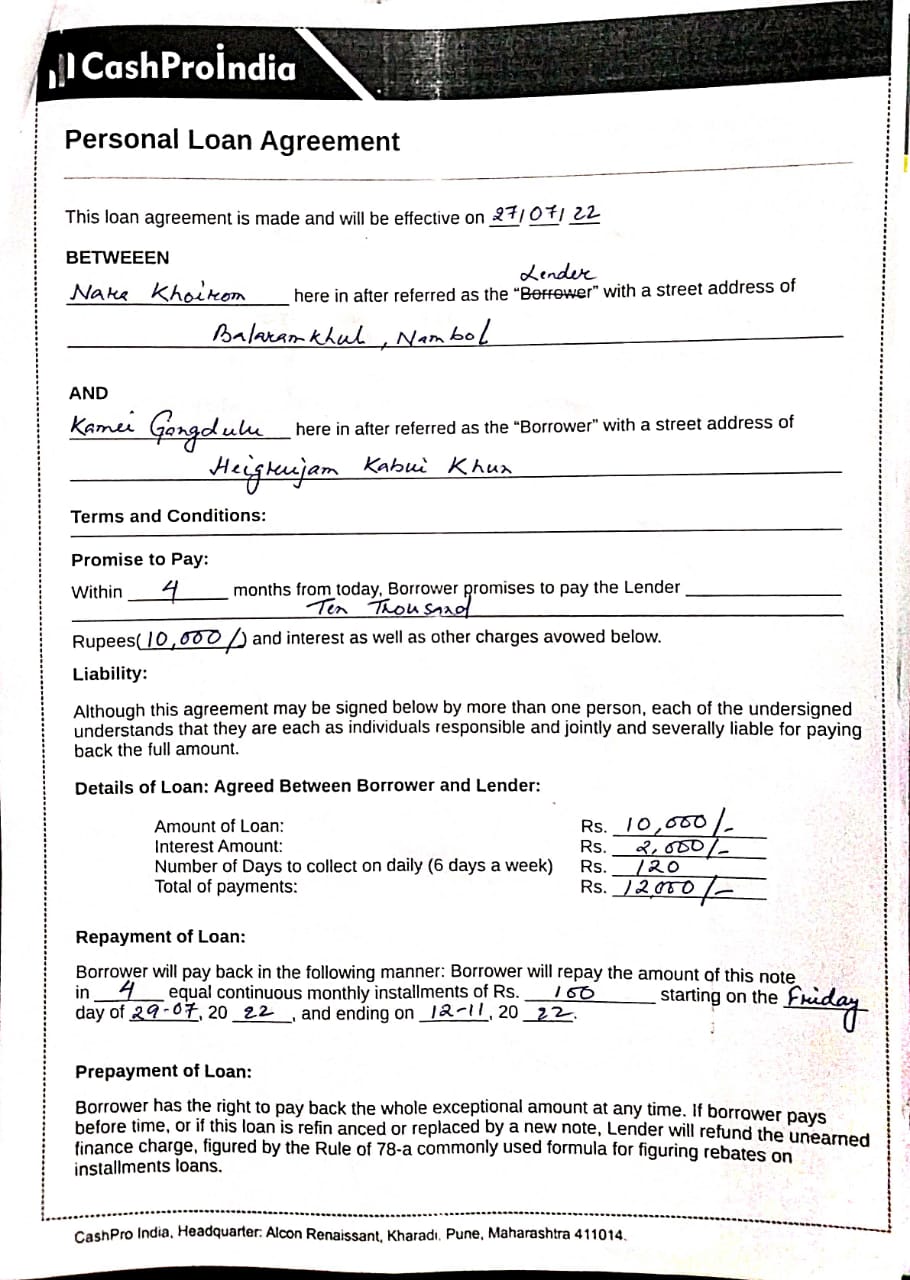 CashProİndia
Personal Loan Agreement
This loan agreement is made and will be effective on 27/07/22
BETWEEEN
Lender
Nara Khoirom here in after referred as the “Borrower” with a street address of
Balaramkhul, Nambol
AND
Kamei Gongdulu here in after referred as the “Borrower” with a street address of
Heigrujam Kabui Khun
Terms and Conditions:
Promise to Pay:
Within 4 months from today, Borrower promises to pay the Lender
Ten Thousand
Rupees(10,000/) and interest as well as other charges avowed below.
Liability:
Although this agreement may be signed below by more than one person, each of the undersigned
understands that they are each as individuals responsible and jointly and severally liable for paying
back the full amount.
Details of Loan: Agreed Between Borrower and Lender:
Amount of Loan: Rs. 10,000/-
Interest Amount: Rs. 2,000/-
Number of Days to collect on daily (6 days a week) Rs. 120
Total of payments: Rs. 12000/-
Repayment of Loan:
Borrower will pay back in the following manner: Borrower will repay the amount of this note
in 4 equal continuous monthly installments of Rs. 100 starting on the Friday
day of 29-07, 20 22, and ending on 12-11, 20 22.
Prepayment of Loan:
Borrower has the right to pay back the whole exceptional amount at any time. If borrower pays
before time, or if this loan is refin anced or replaced by a new note, Lender will refund the unearned
finance charge, figured by the Rule of 78-a commonly used formula for figuring rebates on
installments loans.
CashPro India, Headquarter: Alcon Renaissant, Kharadi, Pune, Maharashtra 411014.